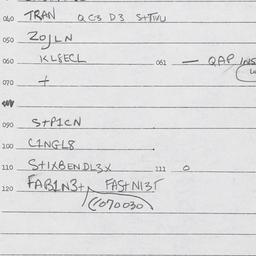 060 TRAN QC3 D3 S+TIVU
050 ZOJLN
060 KL8ECL 061 — QAP INS
070 +
090 S+P1CN
100 C1NGL8
110 S+IXBENDL3X 111 O
120 FAB1N3+ FAS+N13T
CC070030